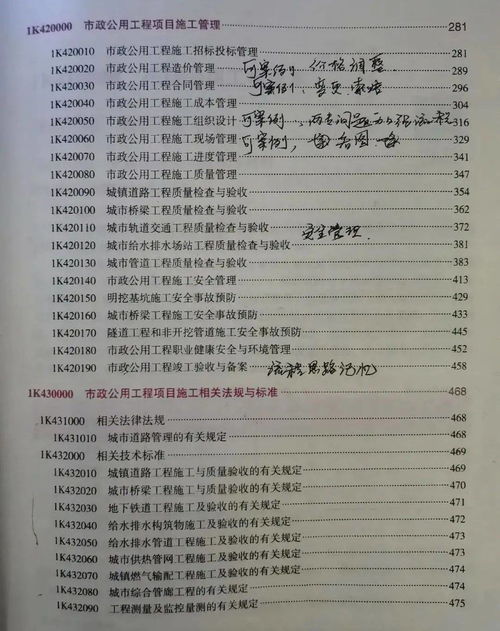 1K420000 市政公用工程项目施工管理 281
1K420010 市政公用工程施工招标投标管理 281
1K420020 市政公用工程造价管理 可案例, 价格调整 289
1K420030 市政公用工程合同管理 可案例, 变更.索赔 296
1K420040 市政公用工程施工成本管理 304
1K420050 市政公用工程施工组织设计 可案例, 316
1K420060 市政公用工程施工现场管理 可案例, 329
1K420070 市政公用工程施工进度管理 341
1K420080 市政公用工程施工质量管理 347
1K420090 城镇道路工程质量检查与验收 354
1K420100 城市桥梁工程质量检查与验收 362
1K420110 城市轨道交通工程质量检查与验收 372
安全管理.
1K420120 城市给水排水场站工程质量检查与验收 381
1K420130 城市管道工程质量检查与验收 383
1K420140 市政公用工程施工安全管理 413
1K420150 明挖基坑施工安全事故预防 429
1K420160 城市桥梁工程施工安全事故预防 433
1K420170 隧道工程和非开挖管道施工安全事故预防 445
1K420180 市政公用工程职业健康安全与环境管理 452
1K420190 市政公用工程竣工验收与备案 流程思路记忆 458
1K430000 市政公用工程项目施工相关法规与标准 468
1K431000 相关法律法规 468
1K431010 城市道路管理的有关规定 468
1K432000 相关技术标准 469
1K432010 城镇道路工程施工与质量验收的有关规定 469
1K432020 城市桥梁工程施工与质量验收的有关规定 470
1K432030 地下铁道工程施工及验收的有关规定 471
1K432040 给水排水构筑物施工及验收的有关规定 472
1K432050 给水排水管道工程施工及验收的有关规定 473
1K432060 城市供热管网工程施工及验收的有关规定 473
1K432070 城镇燃气输配工程施工及验收的有关规定 474
1K432080 城市综合管廊工程的有关规定 474
1K432090 工程测量及监控量测的有关规定 475